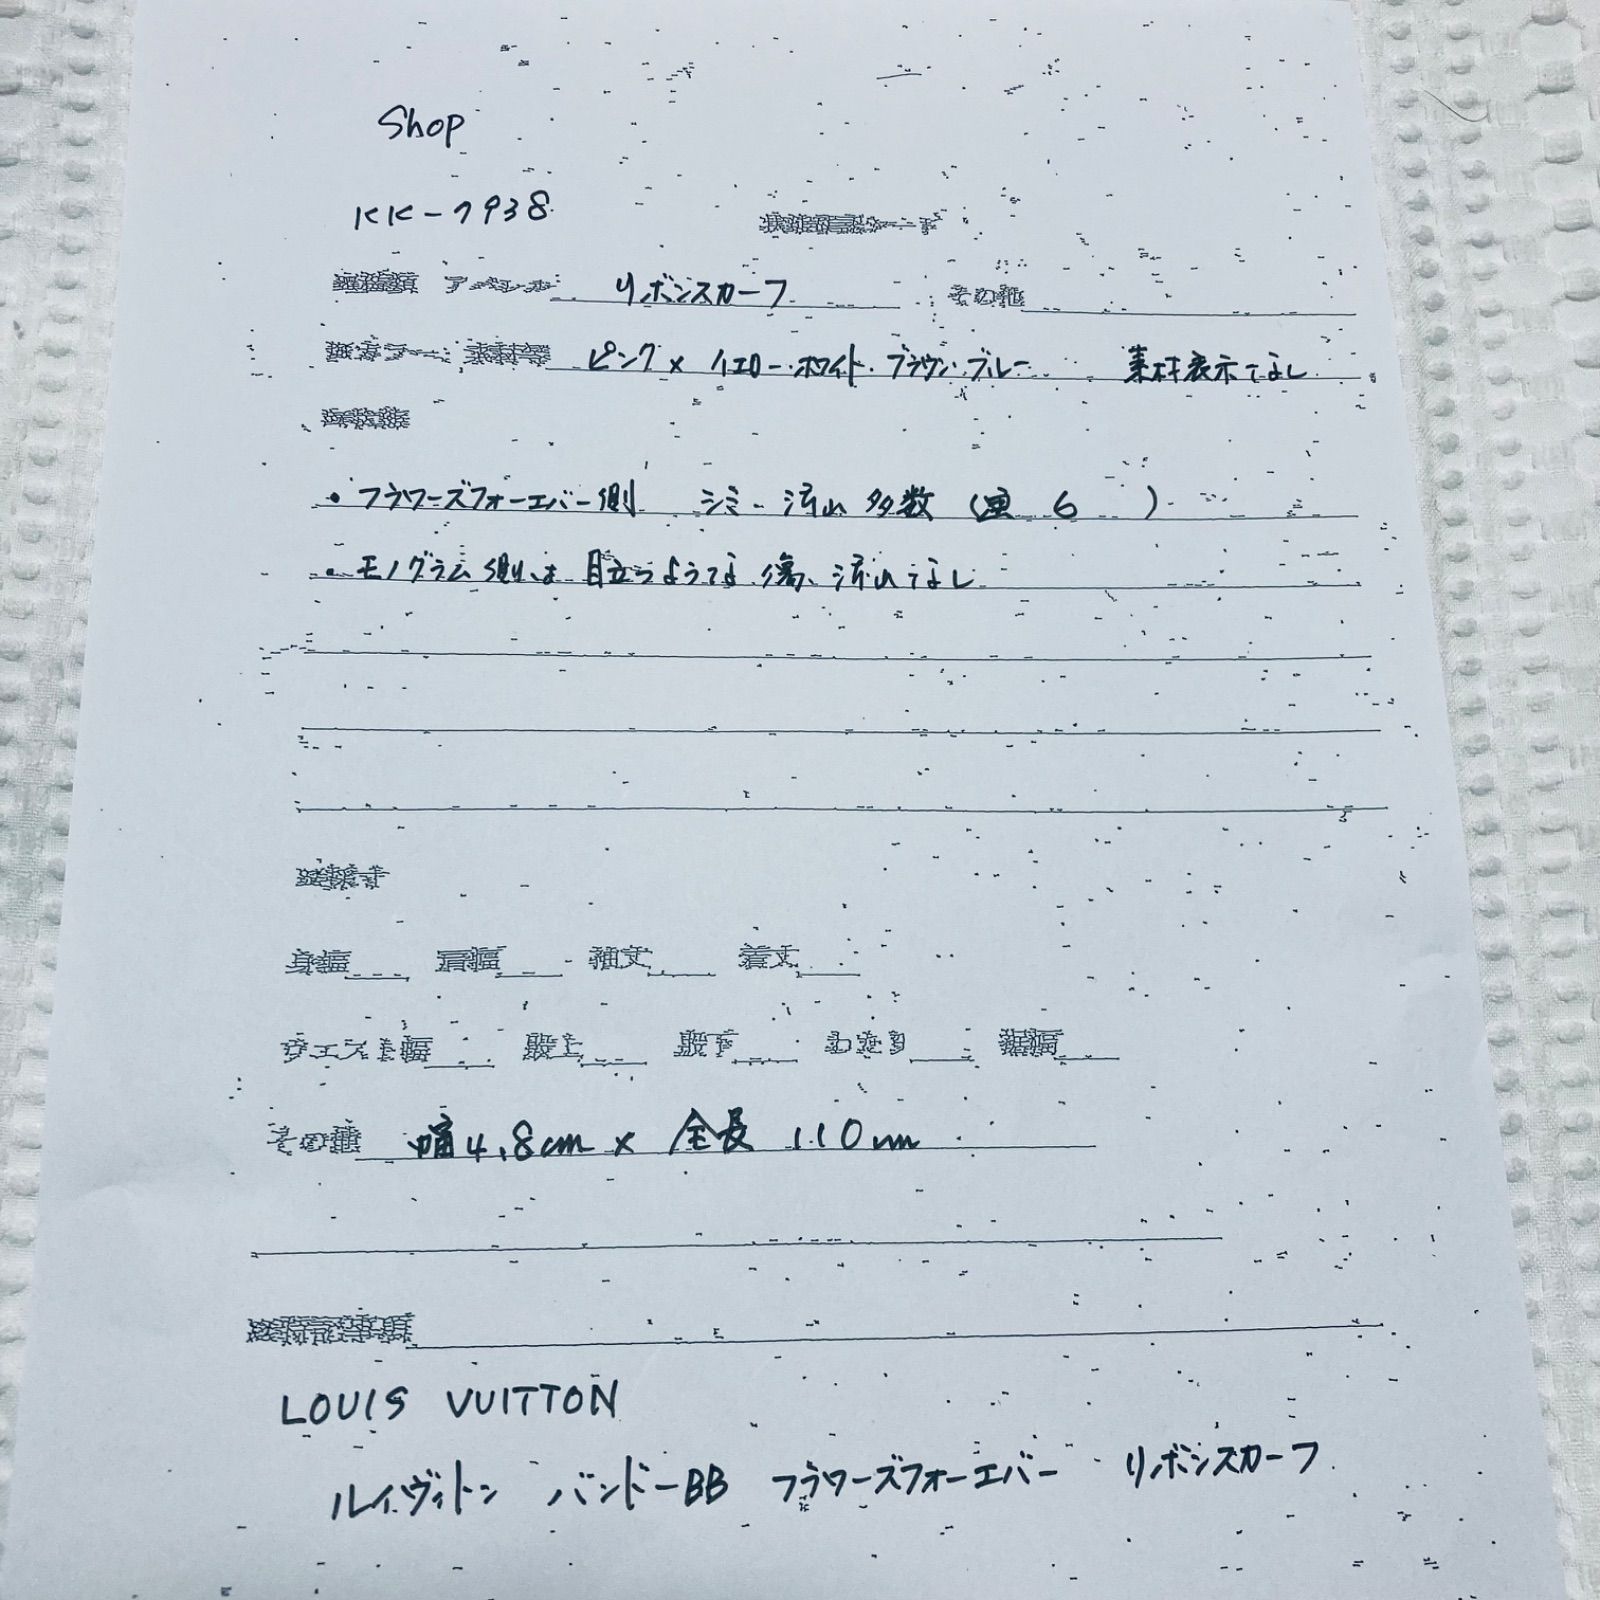 Shop
KK-7938
アパレル リボンスカーフ その他
ピンク×イエロー・ホワイト・ブラウン・ブルー 素材表示なし
・フラワーズフォーエバー側 シミ・汚れ多数( 6 )
・モノグラム側は目立つような傷、汚れなし
身幅 肩幅 袖丈 着丈
ウエスト幅 股上 股下 わたり 裾幅
その他 幅4.8cm×全長110cm
LOUIS VUITTON
ルイヴィトン バンドーBB フラワーズフォーエバー リボンスカーフ